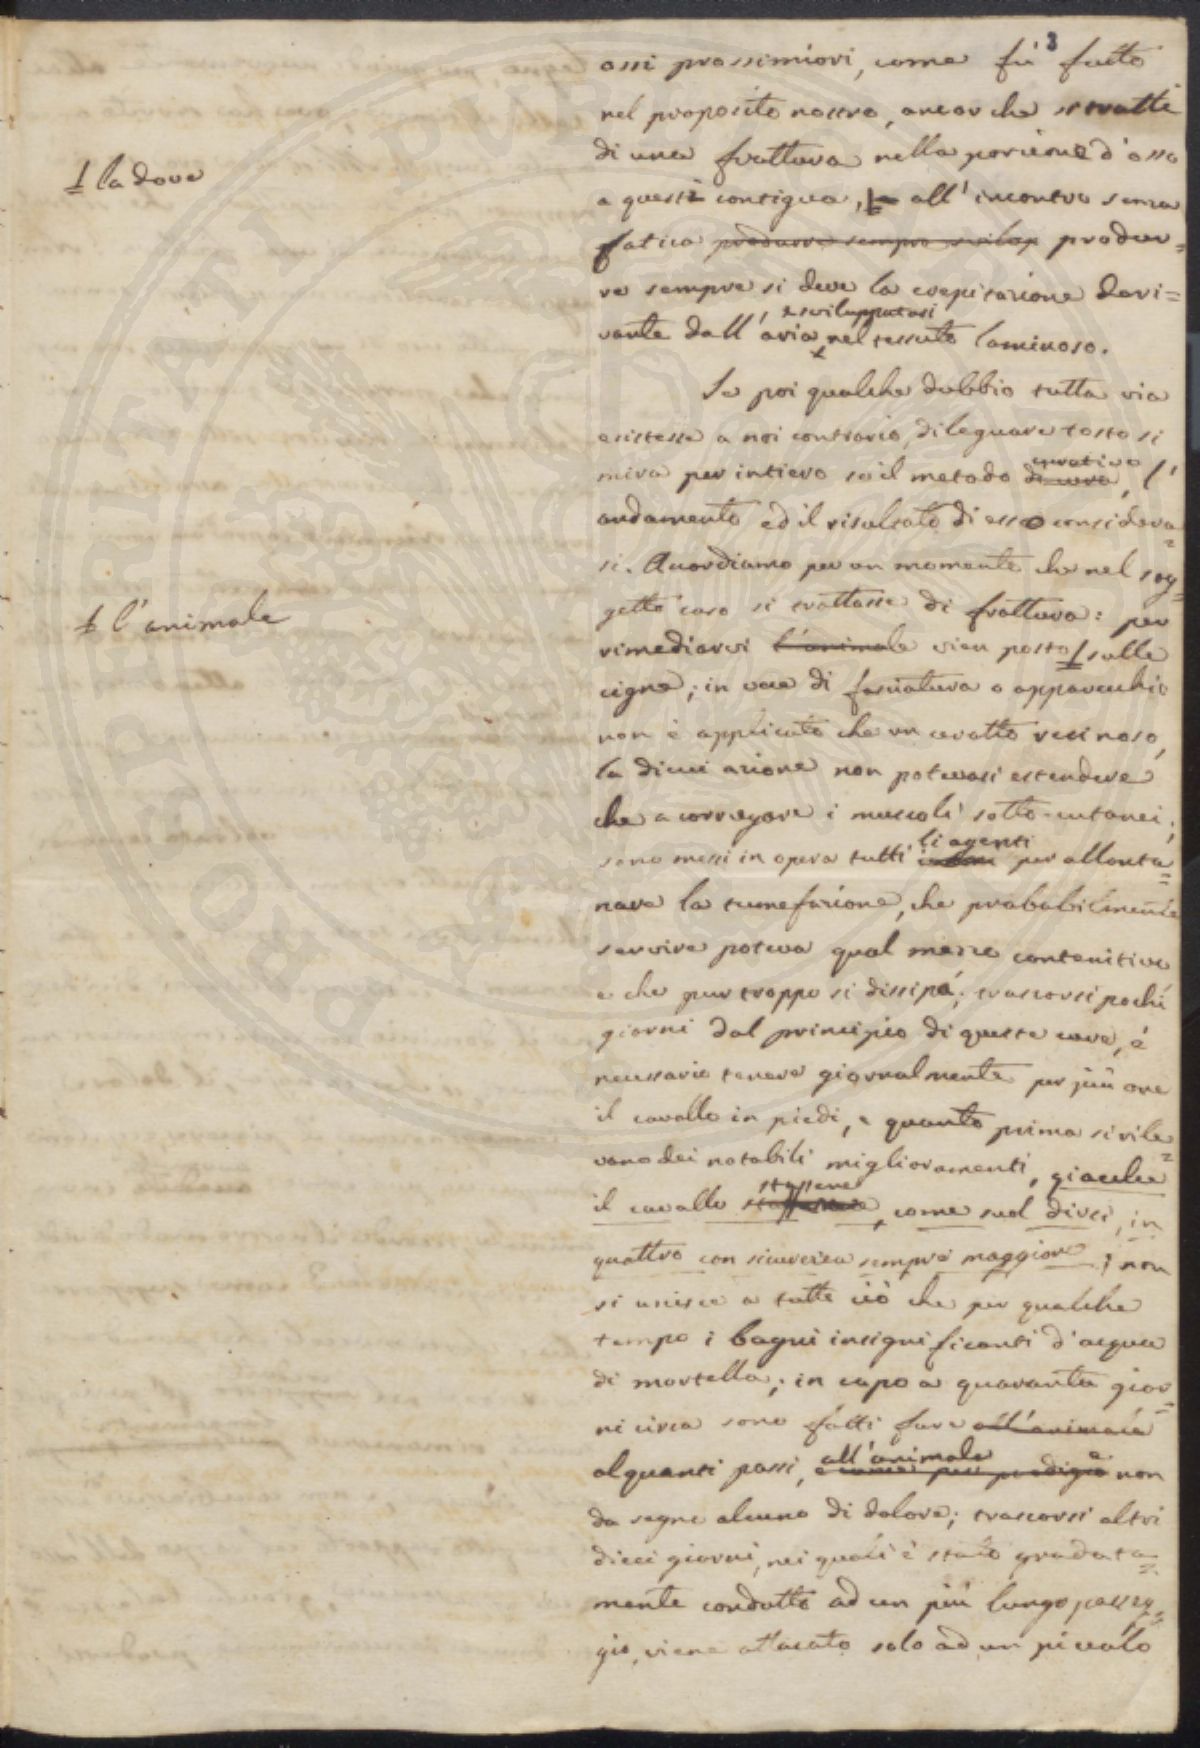 3
ossi prossimiori, come fù fatto
nel proposito nostro, ancor che si tratti
di una frattura nella porzione d'osso
a questi contigua, all'incontro senza
fatica produrre sempre svilup produr=
re sempre si deve la crepitazione deri=
vante dall'aria sviluppatasi nel tessuto laminoso.
Se poi qualche dubbio tutta via
esistesse a noi contrario, dileguare tosto si
mira per intiero se il metodo di cura curativo, l'
andamento ed il risultato di esso considera=
si. Accordiamo per un momento che nel sog=
getto caso si trattasse di frattura: per
rimediarvi l'animale vien posto sulle
cigne; in vece di fasciatura o apparecchio
non è applicato che un cerotto resinoso,
la di cui azione non potevasi estendere
che a corregare i muscoli sotto-cutanei;
sono messi in opera tutti li agenti per allonta=
nare la tumefazione, che probabilmente
servire poteva qual mezzo contenitivo
e che pur troppo si dissipò; trascorsi pochi
giorni dal principio di questa cura, è
necessario tenere giornalmente per più ore
il cavallo in piedi, e quanto prima si rile=
vano dei notabili miglioramenti, giacchè
il cavallo stassene, come suol dirsi, in
quattro con sicurezza sempre maggiore; non
si unisce a tutto ciò che per qualche
tempo i bagni insignificanti d'acqua
di mortella; in capo a quaranta gior=
ni circa sono fatti fare all'animale
alquanti passi, all'animale e come per prodigio e non
da segno alcuno di dolore; trascorsi altri
dieci giorni, nei quali è stato gradata=
mente condotto ad un più lungo passeg=
gio, viene attacato solo ad un piccolo
la dove
l'animale
PROPRIETÀ
PUBBLICA